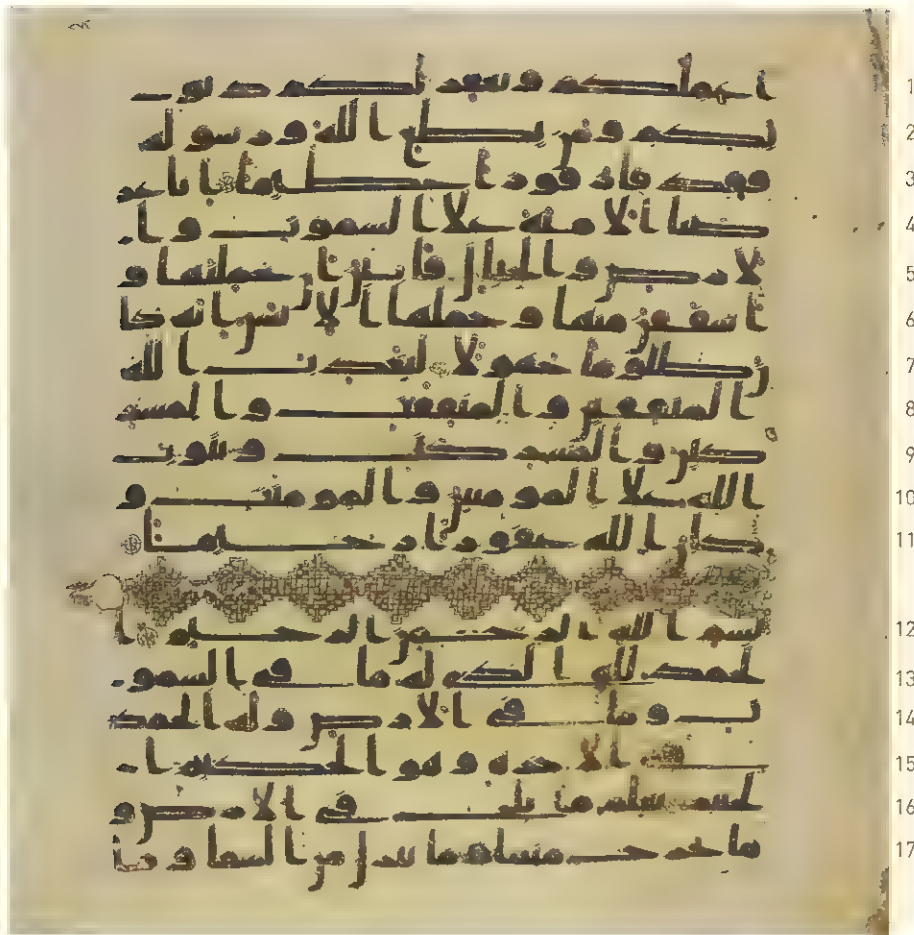 اعملكم ويغفر لكم ذنو 1
بكم ومن يطع الله ورسوله 2
فقد فاز فوزا عظيما انا عر 3
ضنا الامنة على السموت وا 4
لارض والجبال فابين ان يحملنها و 5
اشفقن منها وحملها الانسن انه كا 6
ن ظلوما جهولا ليعذب الله 7
المنفقين والمنفقت والمشر 8
كين والمشركت ويتوب 9
الله على المومنين والمومنت و 10
كان الله غفورا رحيما 11
بسم الله الرحمن الرحيم ا 12
لحمد لله الذي له ما في السمو 13
ت وما في الارض وله الحمد 14
في الاخرة وهو الحكيم ا 15
لخبير يعلم ما يلج في الارض و 16
ما يخرج منها وما ينزل من السما وما 17